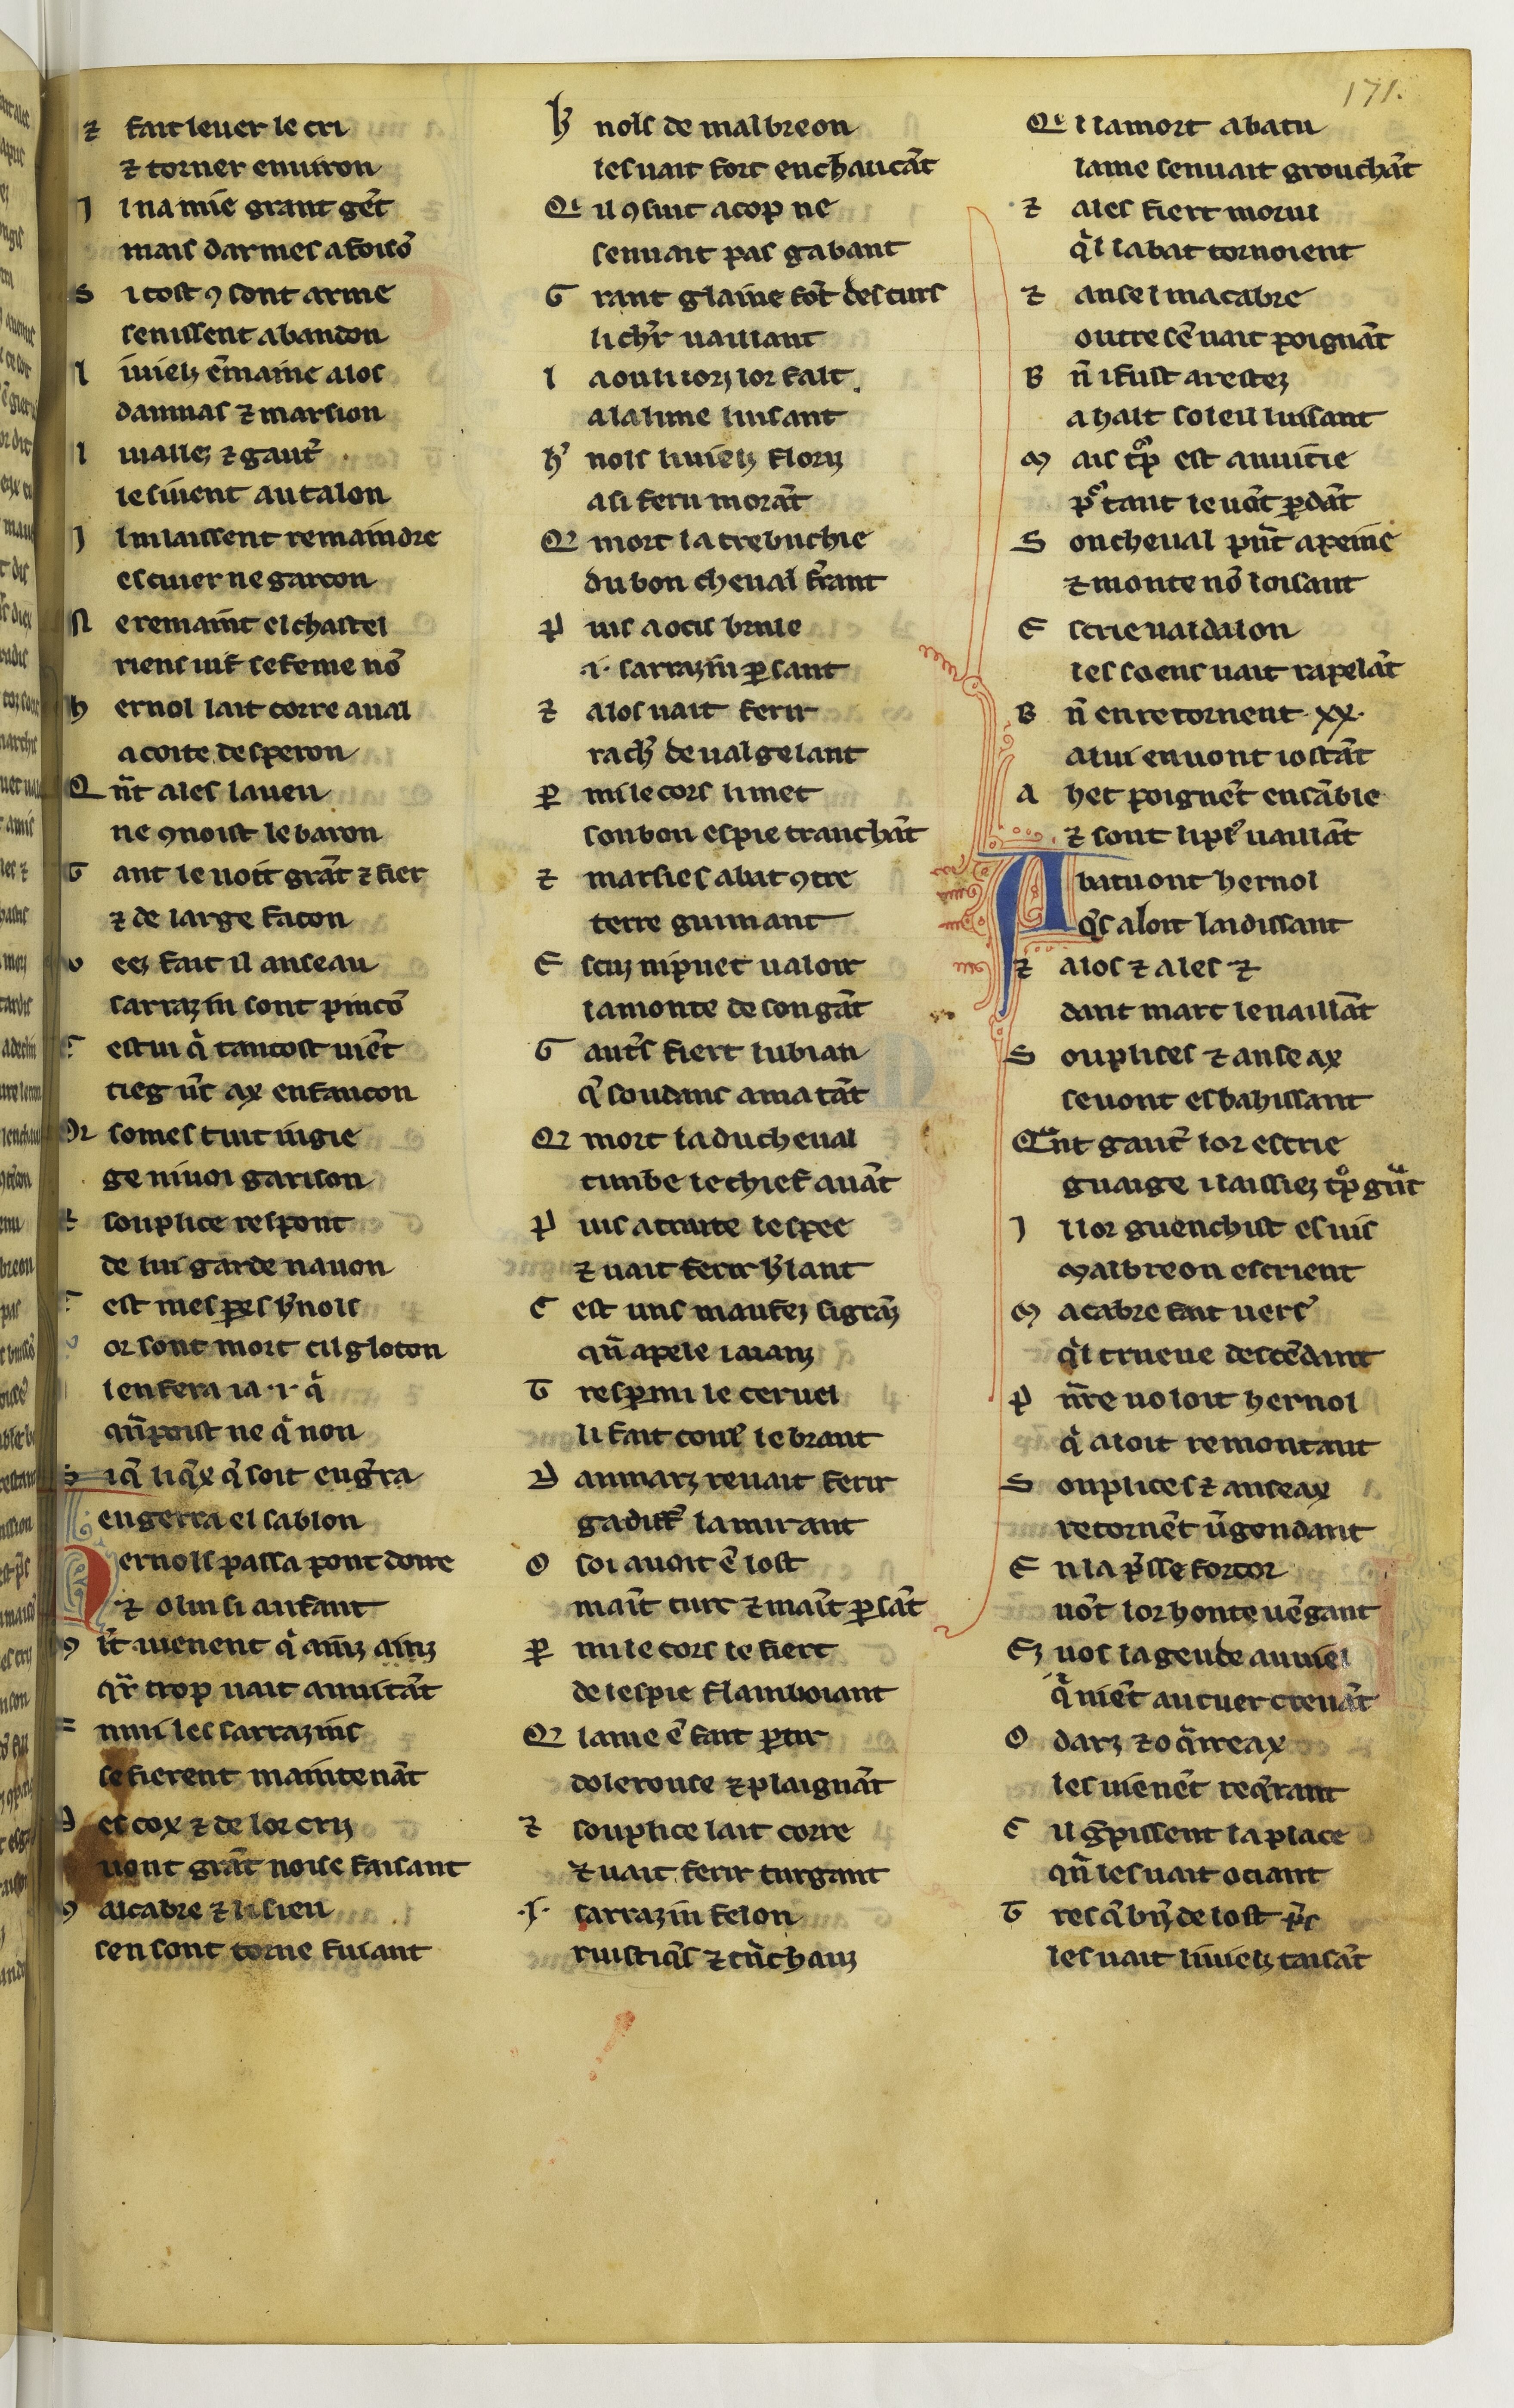 171.
⁊ fait leuer le cri
⁊ torner enuiron
J l na mie grant gẽt
mais darmes a foisõ
S i tost ꝯ sont arme
sen issent abandon
l i uielz ẽmaine alos
damnas ⁊ marsion
l i uallez ⁊ gaut᷑
le siuent au talon
J l ni laissent remaindre
escuier ne garcon
N e remaint el chastel
riens uif se feme nõ
h ernol lait corre aual
a coite desperon
Q nt̃ ales la ueu
ne ꝯnoist le baron
T ant le uoit grãt ⁊ fier
⁊ de large facon
v eez fait il anseau
sarrazin sont pincõ
C estui q̃ tantost uiẽt
tieg u᷑s ax enfancon
Or somes tuit iugie
ge ni uoi garison
E souplice respont
de lui garde nauon
C est mes ꝑes h᷑nols
or sont mort cil gloton
l en fera ia ·i· q̃
qñ poist ne q̃ non
S i q̃ li q̃x q̃ soit eng᷑ra
en gerra el sablon
Hernols passa pont dorre
⁊ olui si anfant
ꝯ ñt uienent q̃ ainz ainz
qr̃ trop uait anuitãt
E nmi les sarrazins
se fierent maintenãt
D es cox ⁊ de lor criz
uont grãt noise faisant
M alcabre ⁊ li sien
sen sont torne fuiant
h᷑ nols de malbreon
les uait fort enchaucãt
Qi il ꝯsiut a cop ne
sen uait pas gabant
G rant glaiue fõt des turs
li ch᷑r uaillant
l a ou li iorz lor falt
a la lune luisant
h᷑ nols li uielz floriz
a si feru morãt
Q mort la trebuchie
du bon cheual fr̃ant
P uis a ocis brule
·i· sarrazin ꝑsant
⁊ alos uait ferir
rach᷑ de ualgelant
ꝑ mi le cors li met
son bon espie tranchãt
⁊ marsies abat ꝯtre
terre guimant
E scuz ni puet ualoir
la monte de son gãt
G aut᷑s fiert lubian
q̃ soudans ama tãt
Q mort la du cheual
tunbe le chief auãt
P uis a traite lespee
⁊ uait ferir h᷑lant
C est uns maufez si grãz
qñ apele iaianz
T res ꝑ mi le ceruel
li fait coul᷑ le brant
D anmarz reuait ferir
gadift᷑ lamirant
O soi auoit ẽ lost
maĩt turc ⁊ maĩt ꝑsãt
ꝑ mi le cors le fiert
de lespie flamboiant
Q lame ẽ fait ꝑtir
dolerouse ⁊ plaignãt
⁊ souplice lait corre
⁊ uait ferir turgant
·J· sarrazin felon
ruistiq̃s ⁊ tñchanz
Qi l la mort abatu
lame sen uait grouchãt
⁊ ales fiert morui
q̃l labat tornoient
⁊ ansel macabre
outre sẽ uait poignãt
B ñ i fust arestez
a halt soleil luisant
M ais tͦp est anuitie
pͦ tant le uõt ꝑdãt
S on cheual pñt a peine
⁊ monte nõ loisant
E scrie ualdalon
les soens uait rapelãt
B ñ en retornent ·xx·
a lui en uont iostãt
A het poignẽt ensãble
⁊ sont li pl᷑ uaillãt
Abatu ont hernol
q̃s aloit laidissant
⁊ alos ⁊ ales ⁊
dant marc le uaillãt
S ouplices ⁊ anseax
se uont esbahissant
Qant gaut᷑ lor escrie
guaige i laissiez tͦp g᷑nt
J l lor guenchist el uis
malbreon escrient
M acabre fait uers᷑
q̃l trueue descẽdant
P ñre uoloit hernol
q̃ aloit remontant
S ouplices ⁊ anseax
retornẽt ũgondant
E n la p᷑sse forcor
uõt lor honte uẽgant
Ez uos la geude au uiel
q̃ uiẽt au cuer creuãt
O darz ⁊ o q̃rreax
les uienẽt req᷑rant
C il g᷑pissent la place
qñ les uait ociant
T res q̃ bn̄ de lost p᷑s
les uait li uielz taisãt